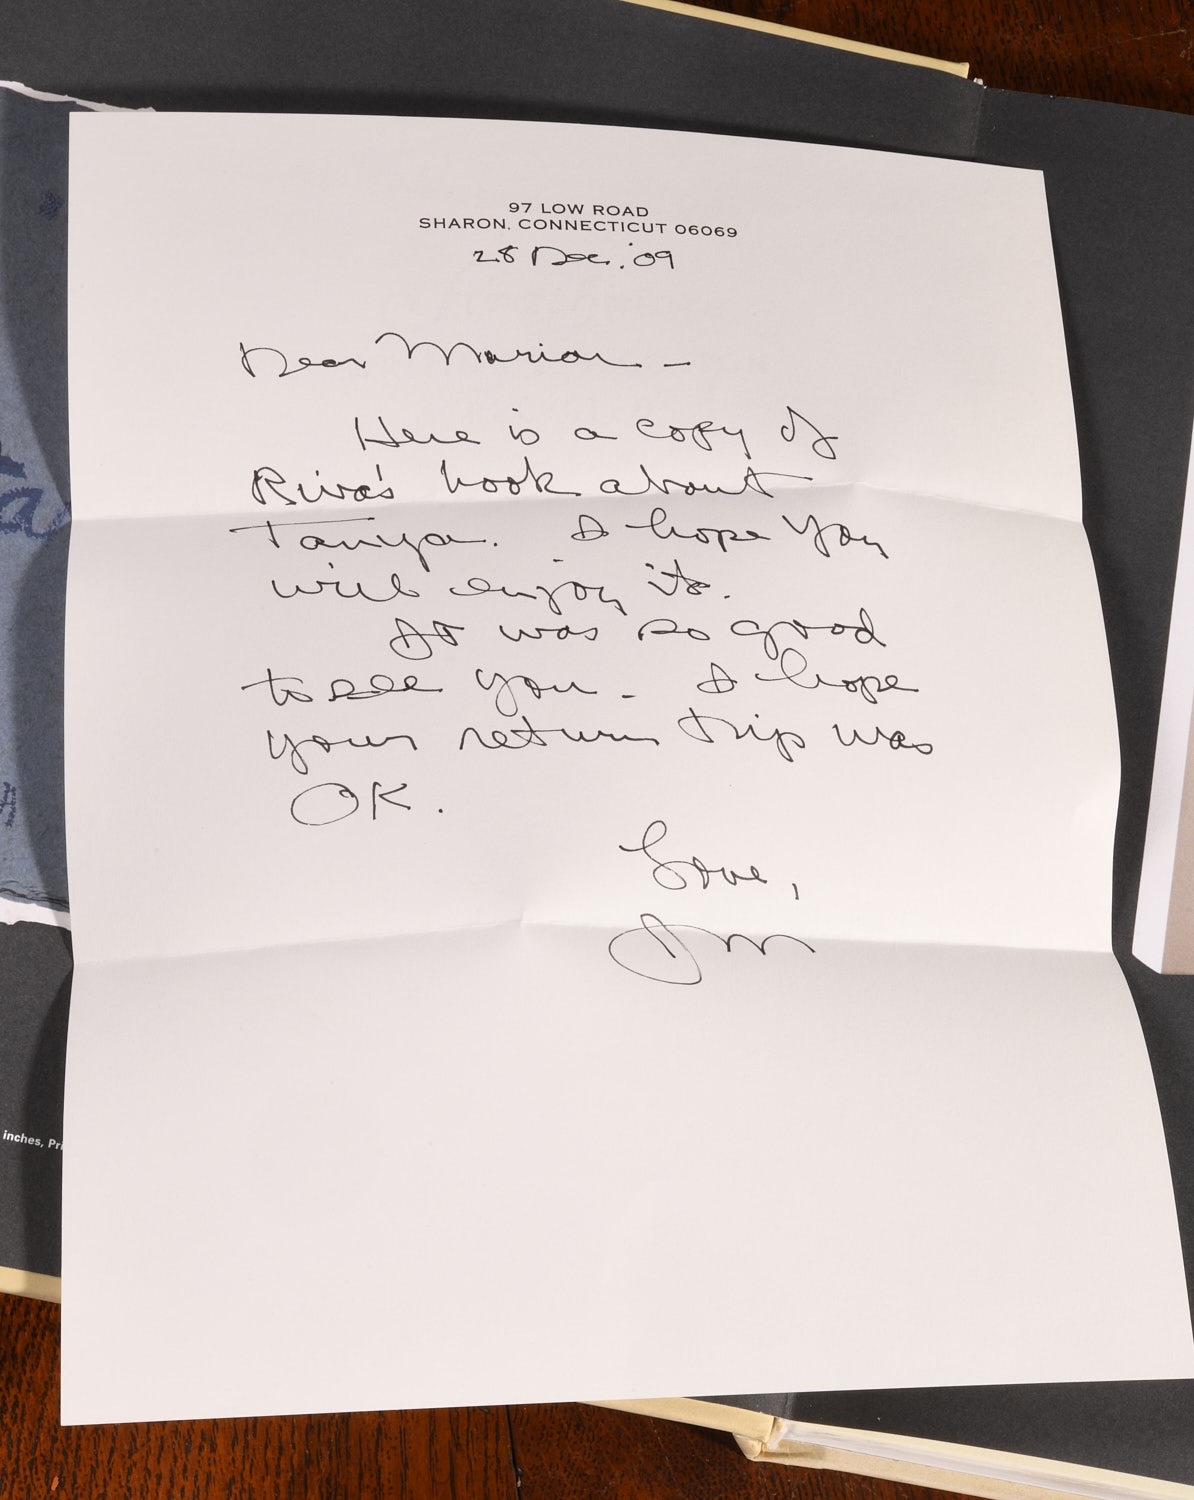 97 LOW ROAD
SHARON, CONNECTICUT 06069
28 Dec. '09
Dear Marian –
Here is a copy of
Riva's book about
Tanya. I hope you
will enjoy it.
It was so good
to see you – I hope
your return trip was
OK.
Love,
inches, Pri